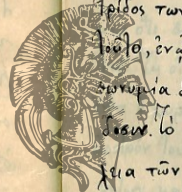 τρίδος των
τοῦτο, ἐν
ωνυμία
δοσιν. Τὸ
χεια τῶν